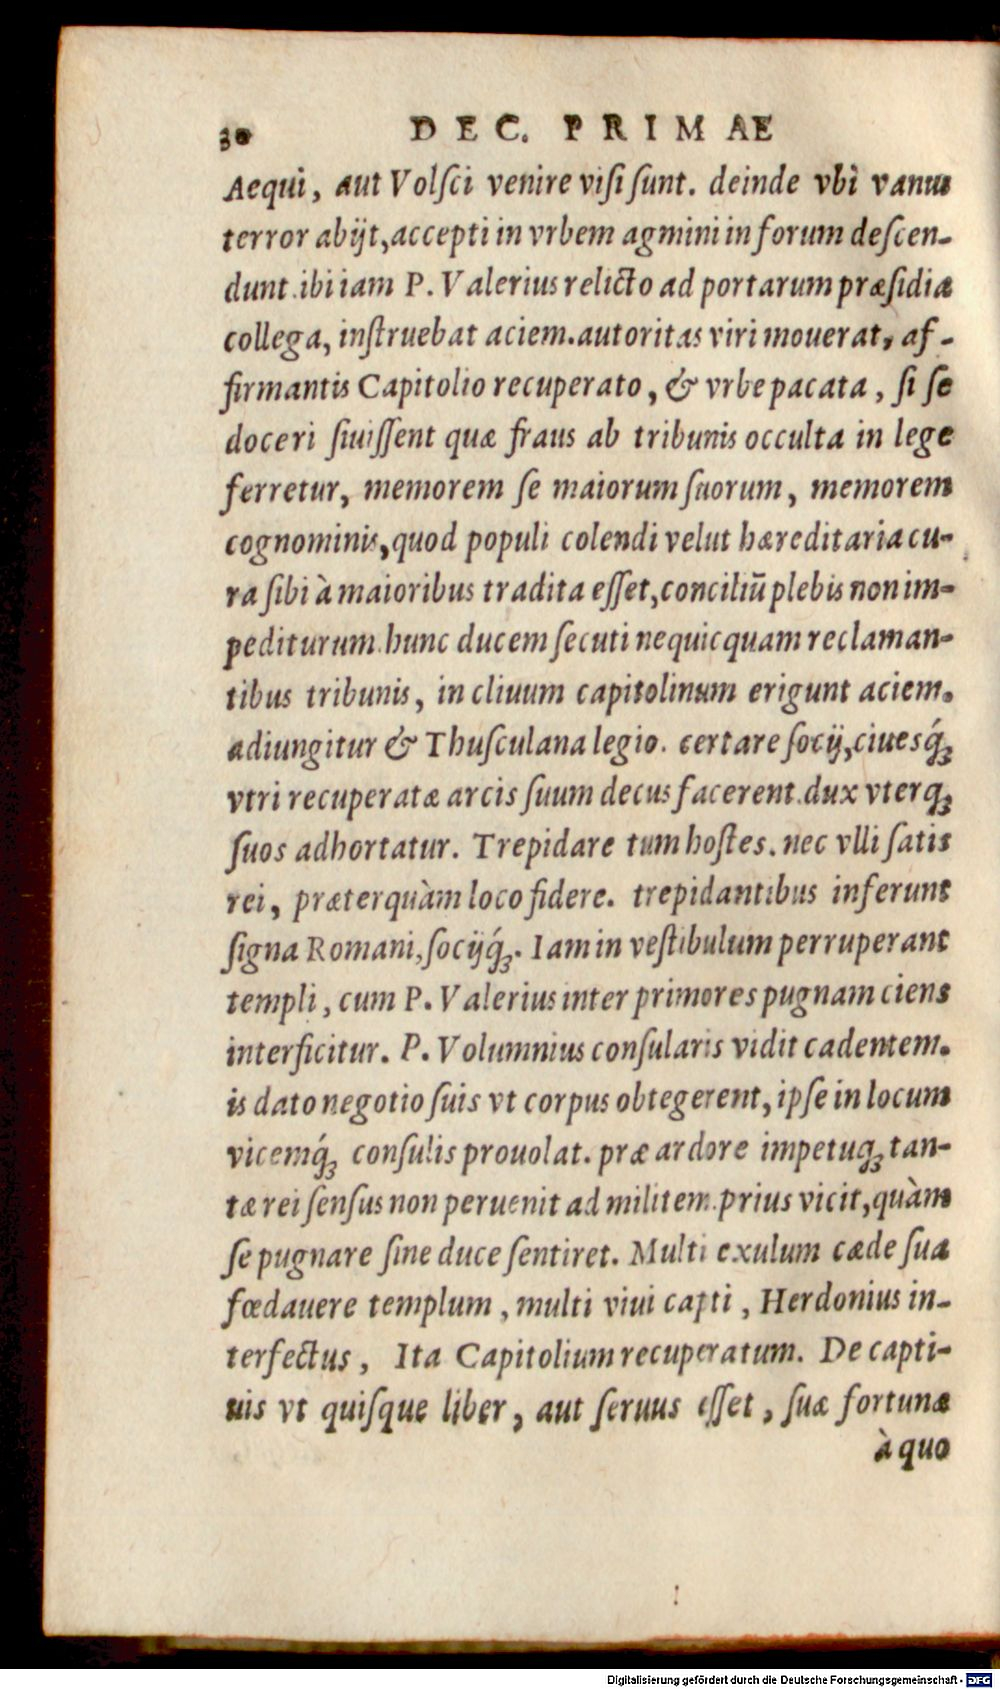 30 DEC. PRIMAE
Aequi, aut Volſci venire viſi ſunt. deinde vbi vanus
terror abijt, accepti in vrbem agmini in forum deſcen-
dunt. ibi iam P. Valerius relicto ad portarum præſidia
collega, inſtruebat aciem. autoritas viri mouerat, af-
firmantis Capitolio recuperato, & vrbe pacata, ſi ſe
doceri ſiuiſſent quæ fraus ab tribunis occulta in lege
ferretur, memorem ſe maiorum ſuorum, memorem
cognominis, quod populi colendi velut hæreditaria cu-
ra ſibi à maioribus tradita eſſet, conciliū plebis non im-
pediturum. hunc ducem ſecuti nequicquam reclaman-
tibus tribunis, in cliuum capitolinum erigunt aciem.
adiungitur & Thuſculana legio. certare ſocij, ciuesq́ꝫ
vtri recuperatæ arcis ſuum decus facerent. dux vterqꝫ
ſuos adhortatur. Trepidare tum hoſtes. nec vlli ſatis
rei, præterquàm loco fidere. trepidantibus inferunt
ſigna Romani, ſocijq́ꝫ. Iam in veſtibulum perruperant
templi, cum P. Valerius inter primores pugnam ciens
interficitur. P. Volumnius conſularis vidit cadentem.
is dato negotio ſuis vt corpus obtegerent, ipſe in locum
vicemq́ꝫ conſulis prouolat. præ ardore impetuqꝫ tan-
tæ rei ſenſus non peruenit ad militem. prius vicit, quàm
ſe pugnare ſine duce ſentiret. Multi exulum cæde ſua
fœdauere templum, multi viui capti, Herdonius in-
terfectus, Ita Capitolium recuperatum. De capti-
uis vt quiſque liber, aut ſeruus eſſet, ſuæ fortunæ
à quo
Digitalisierung gefördert durch die Deutsche Forschungsgemeinschaft - DFG